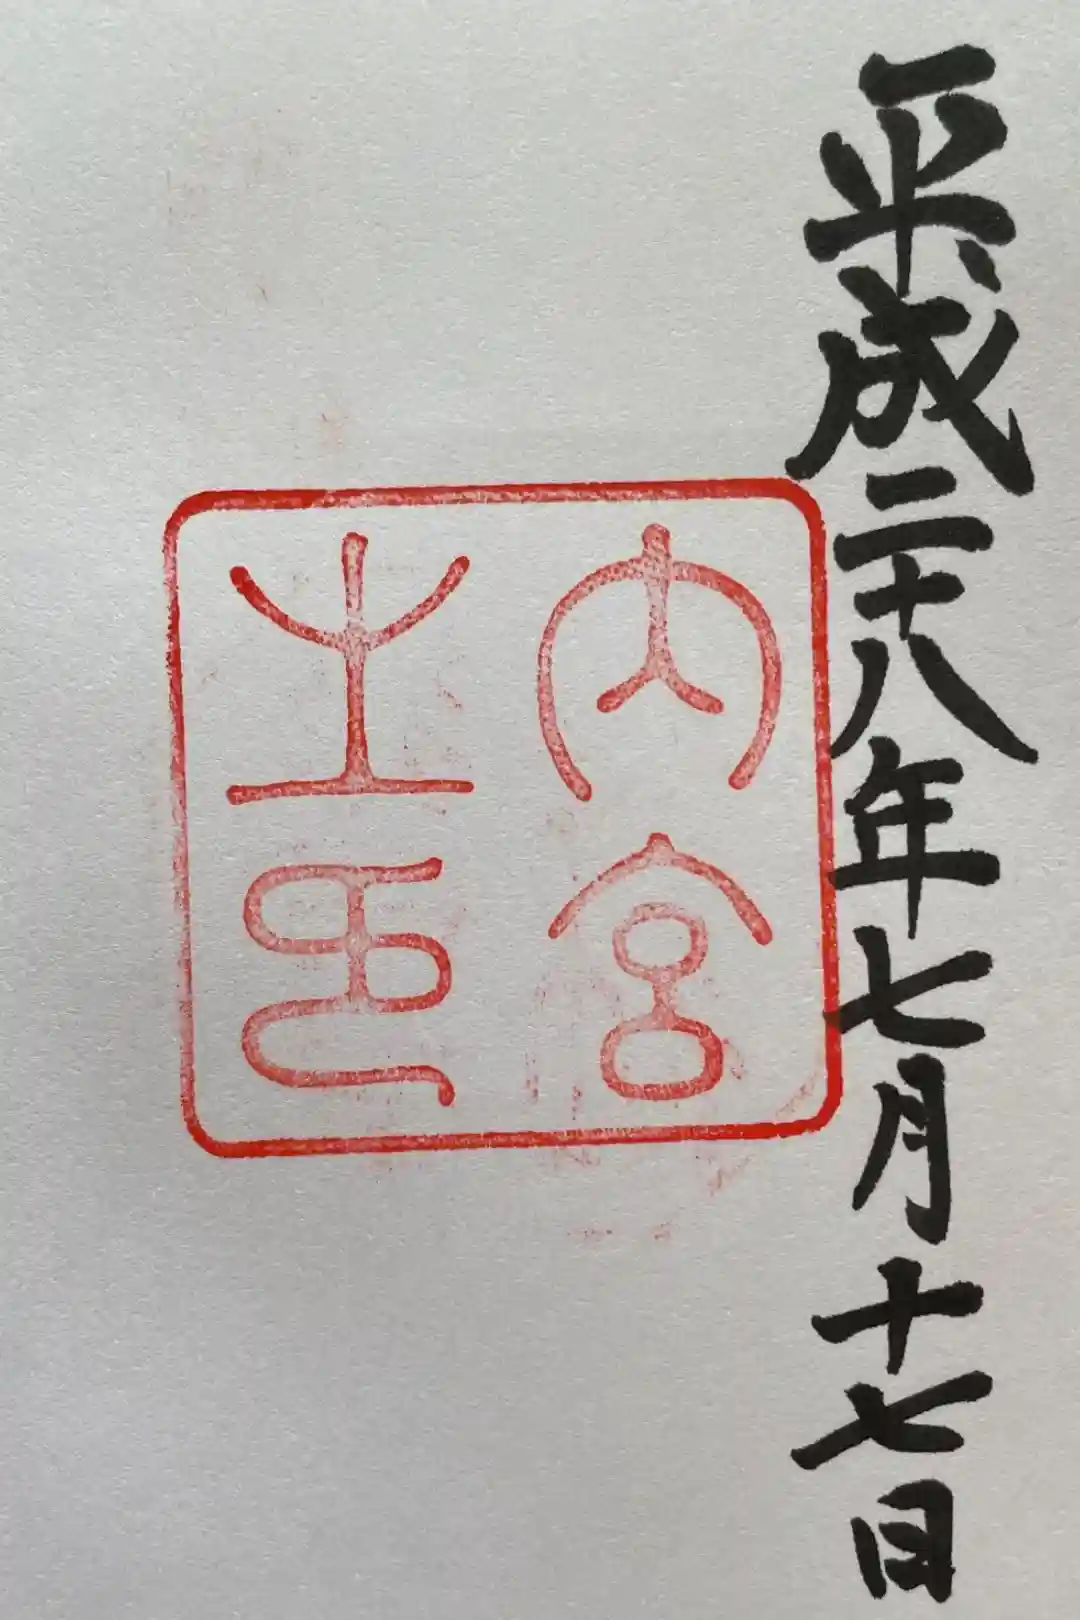 平成二十八年七月十七日
内宮
之印